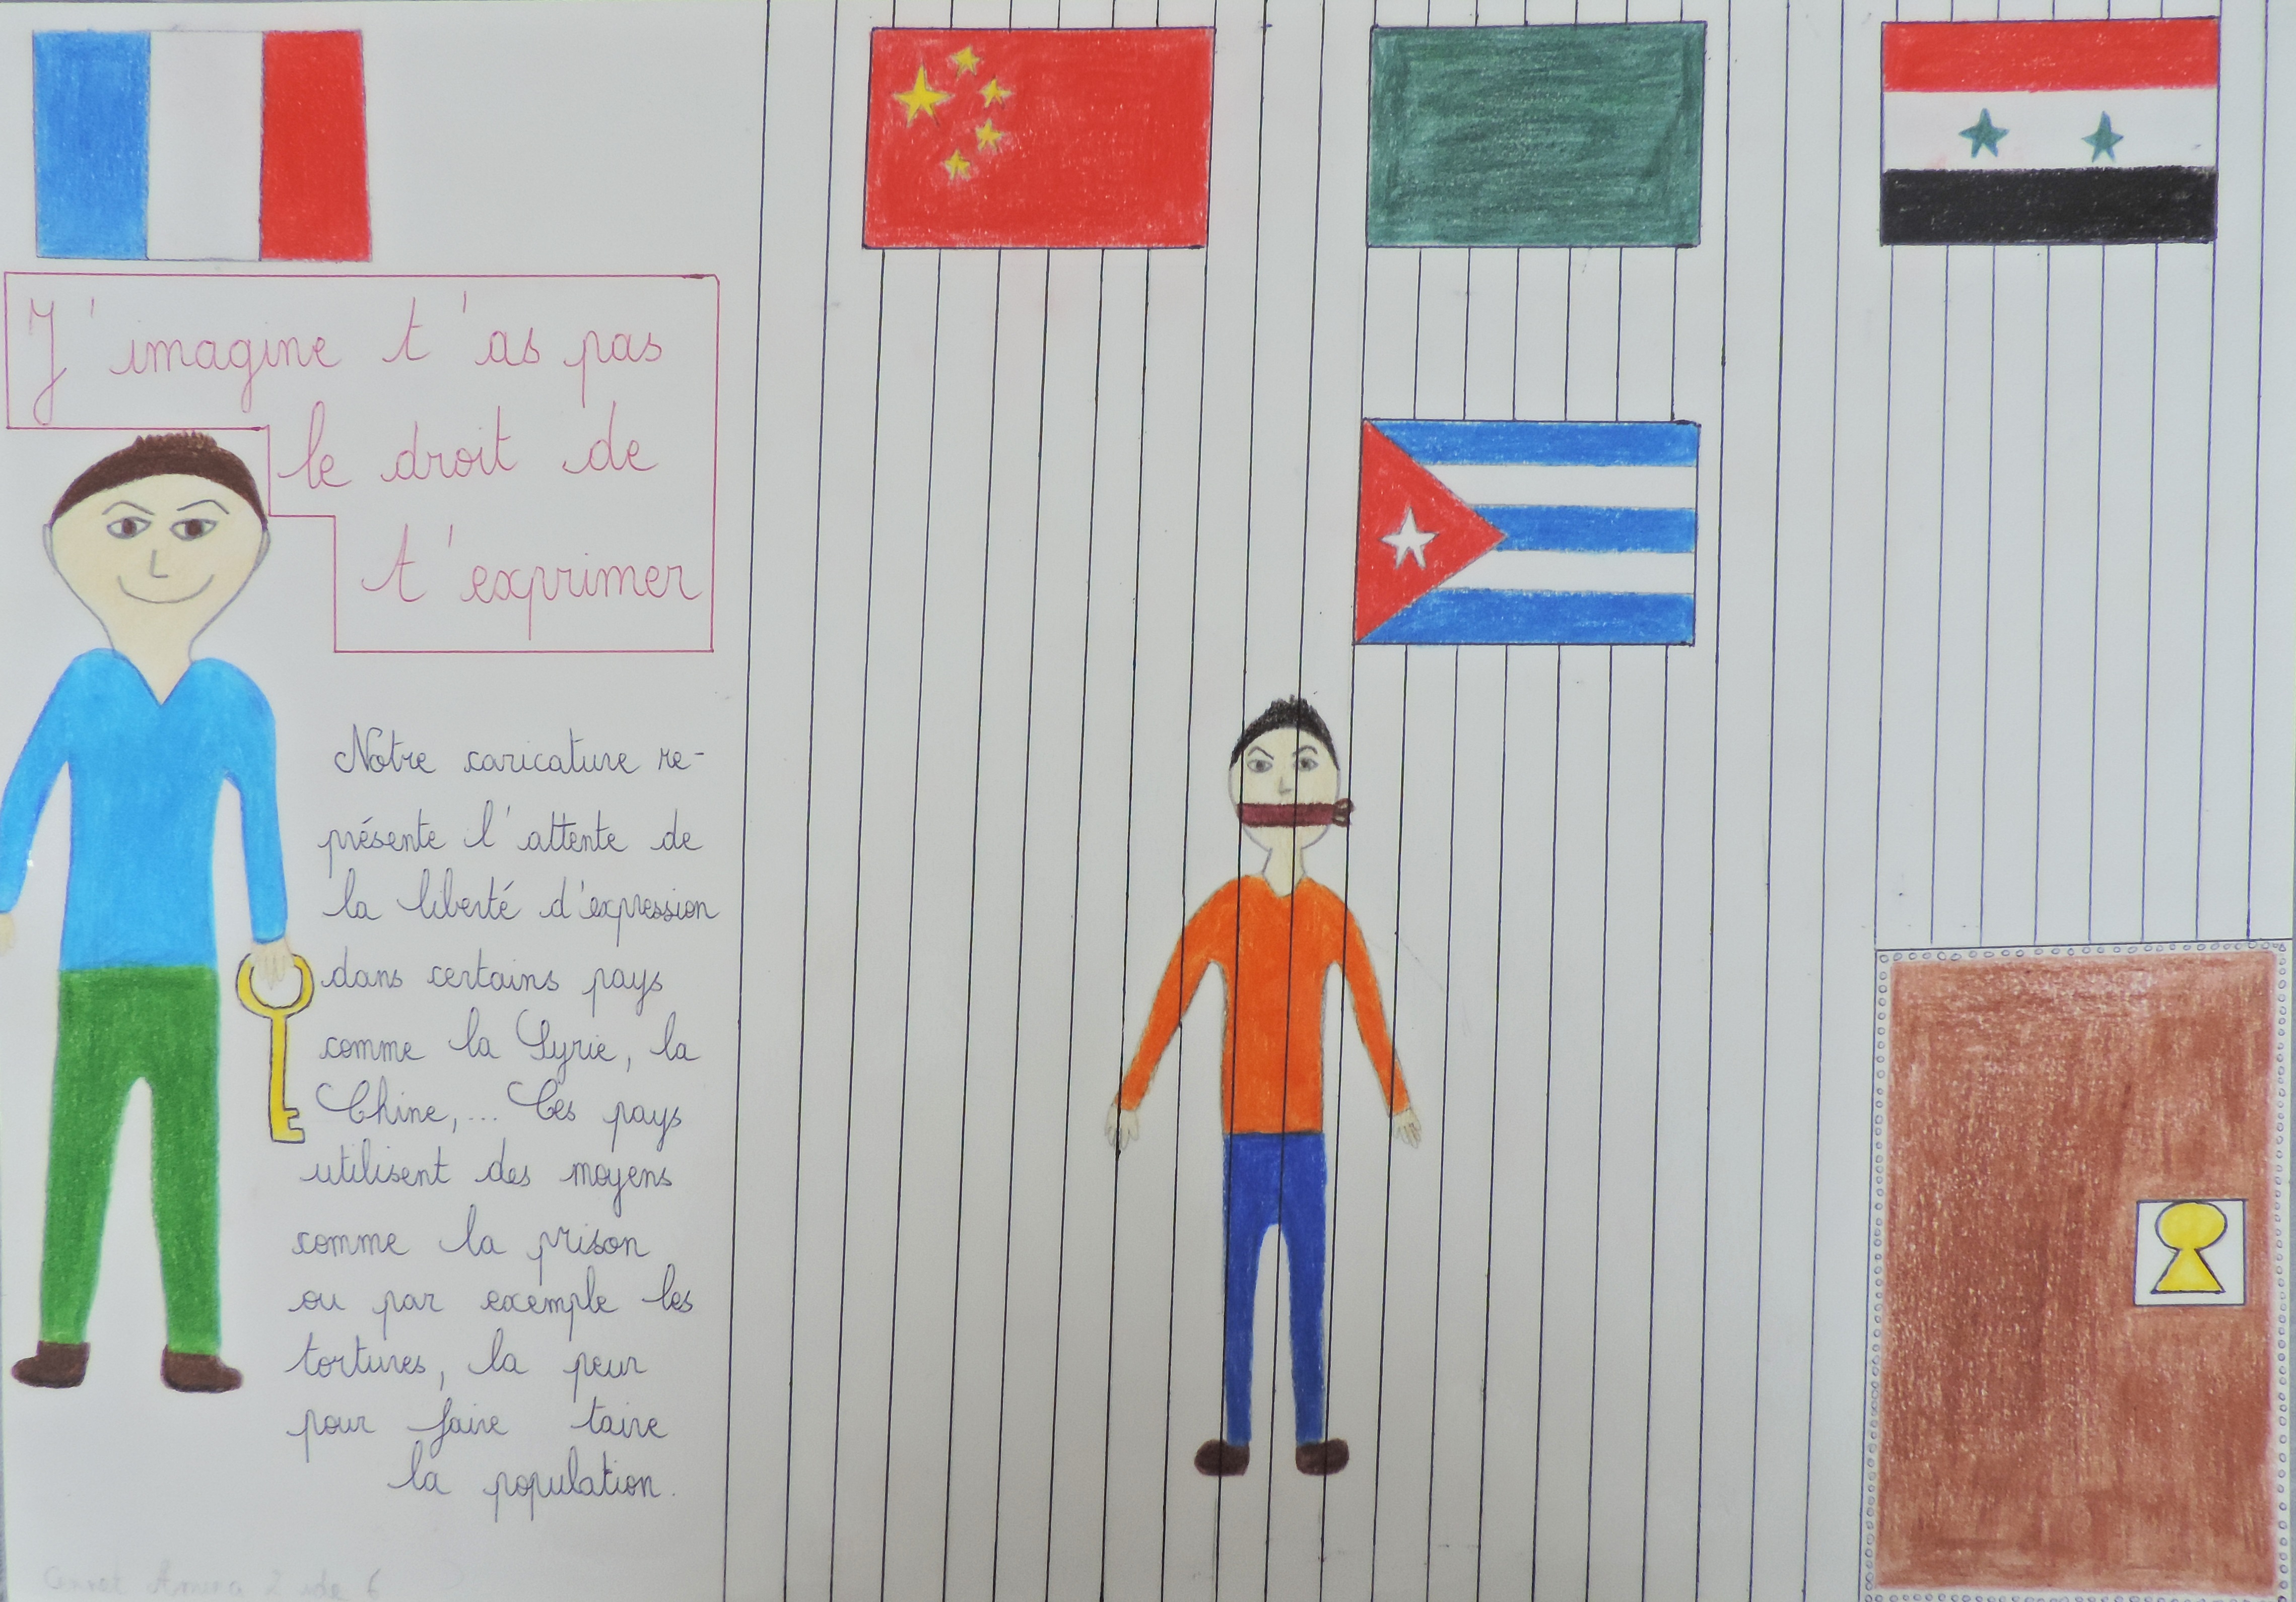 J'imagine t'as pas
le droit de
t'exprimer
Notre caricature re-
présente l'attente de
la liberté d'expression
dans certains pays
comme la Syrie, la
Chine,... Ces pays
utilisent des moyens
comme la prison
ou par exemple les
tortures, la peur
pour faire taire
la population.